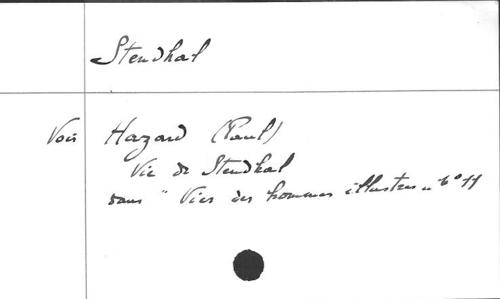 Stendhal
Voir Hazard (Paul)
Vie de Stendhal
dans "Vies des hommes illustres" n° 11